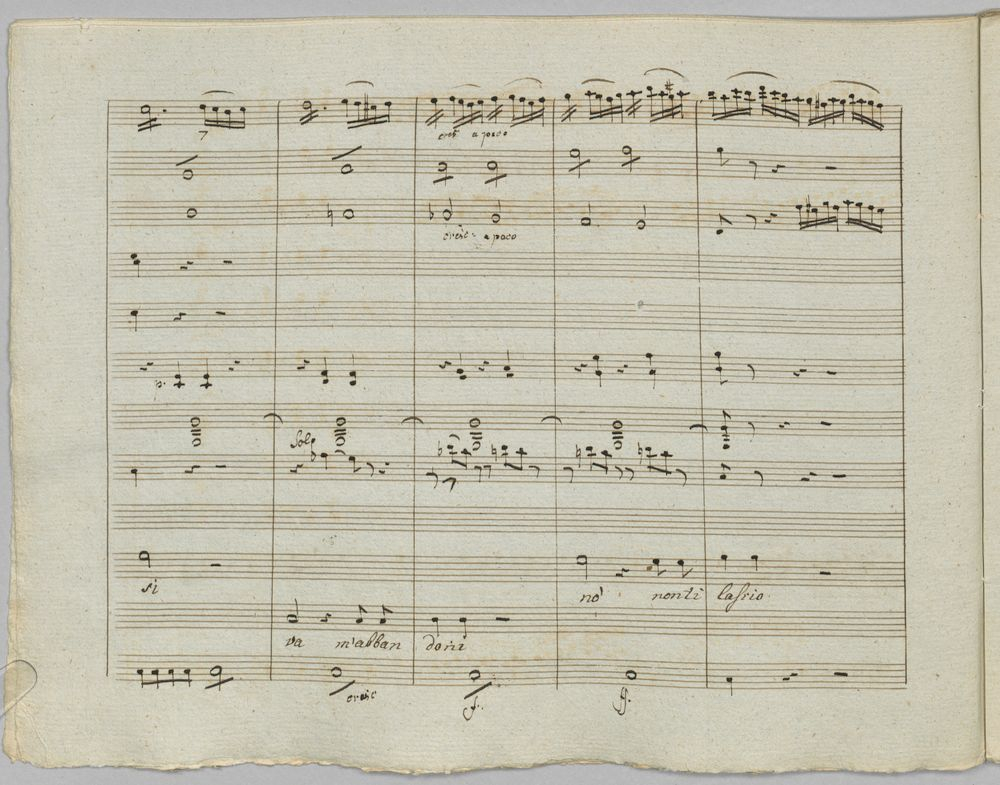 cresc a poco
cresc a poco
p.
Solo
si
no' non ti lascio
va m'abban doni
cresc
f.
ff.